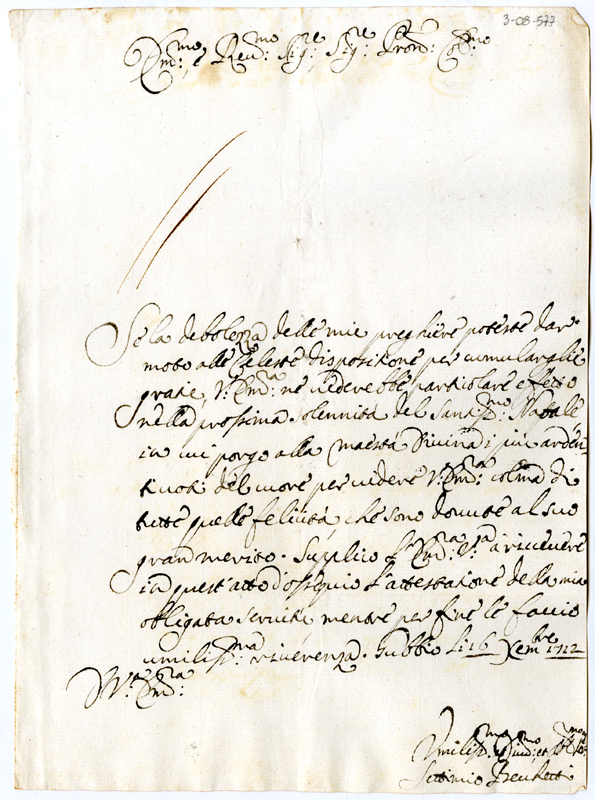 3-08-577
Em:mo, e Reu:mo Sig:re, Sig:re Pron: Col:mo
Se la debolezza delle mie preghiere potesse dar
moto alle Celeste dispositione per cumulargli
gratie, V: Em:za ne vedrebbe particolare effetto
nella prossima solennità del Santiss:mo Natale
in cui porgo alla Maestà Divina i più arden-
ti voti del cuore per vedere V: Em:za colma di
tutte quelle felicità, che sono dovute al suo
gran merito. Supplico l'Em:za V:a à ricevere
in quest'atto d'ossequio l'attestazione della mia
obligata servitù mentre per fine le faccio
umiliss:ma riverenza. Gubbio li 16 Xembre 1712
Di V:a Em:za
Umiliss:mo Diuot:mo et
Settimio